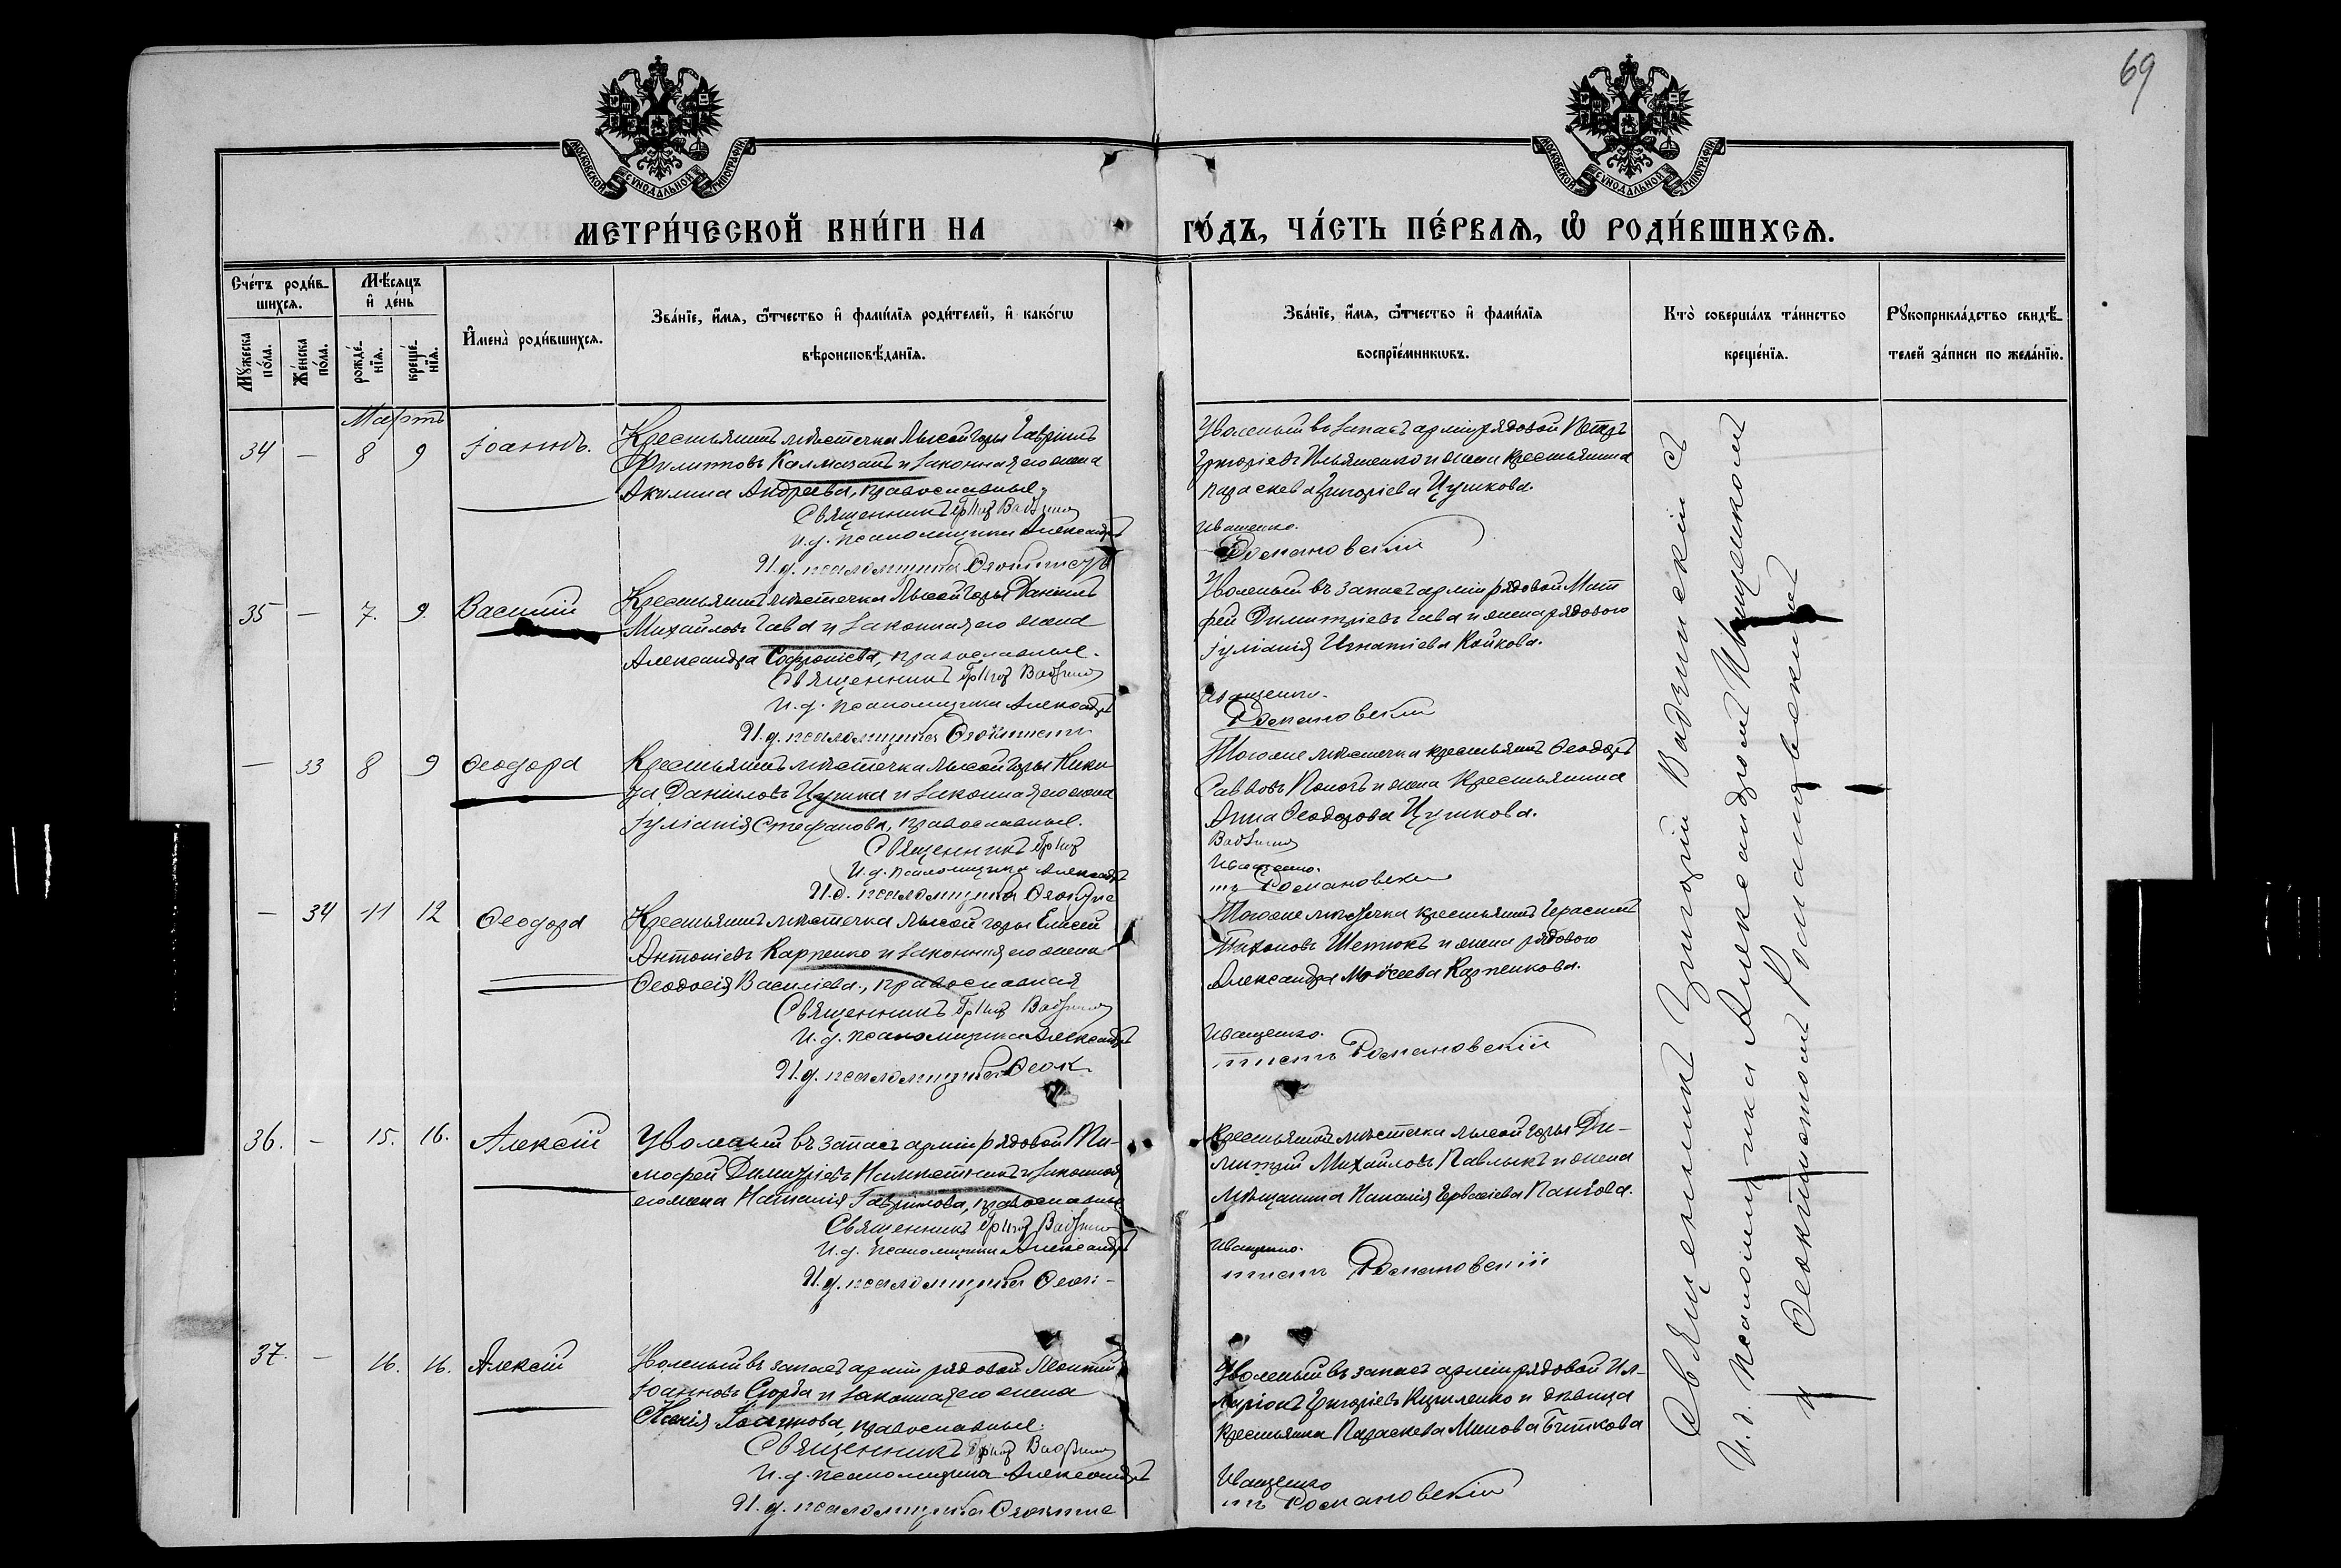 69
МОСКОВСКОЙ СУНОДАЛЬНОЙ ТИПОГРАФІИ
МОСКОВСКОЙ СУНОДАЛЬНОЙ ТИПОГРАФІИ
МЕТРИ́ЧЕСКОЙ КНИ́ГИ НА
ГО́ДЪ, ЧА́СТЬ ПЕ́РВАѦ, Ѽ РОДИ́ВШИХСѦ.
Сче́тъ роди́в-
шихсѧ.
Мꙋ́жеска
по́ла.
Же́нска
по́ла.
Мѣ́сѧцъ
и҆ де́нь
рожде́-
нїѧ.
креще́-
нїѧ.
И҆мена̀ роди́вшихсѧ.
Зва́нїе, и҆́мѧ, ѻ҆́тчество и҆ фами́лїѧ роди́телей, и҆ како́гѡ
вѣроисповѣ́данїѧ.
Зва́нїе, и҆́мѧ, ѻ҆́тчество и҆ фами́лїѧ
воспрїе́мникѡвъ.
Кто̀ соверша́лъ та́инство
креще́нїѧ.
Рꙋкоприкла́дство свидѣ́-
телей за́писи по жела́нїю.
Мартъ
34 — 8 9 Іоаннъ.
Крестьянинъ мѣстечка Лысой горы Гавріилъ
Филиповъ Калмазанъ и законная его жена
Акилина Андреева, православные.
Священникъ Григ Вадзин
И. д. псаломщика Александръ
И. д. псаломщика Ѳеоктистъ
Уволеный въ запасъ арміи рядовой Петръ
Григоріевъ Ильяшенко и жена крестьянина
Параскева Григоріева Цушкова.
Иващенко.
Романовскій
35 — 7. 9. Василій
Крестьянинъ мѣстечка Лысой горы Даніилъ
Михайловъ Гава и законная его жена
Александра Софроніева, православные.
Священникъ Григ Вадзин
И. д. псаломщика Александръ
И. д. псаломщика Ѳеоктистъ
Уволеный въ запасъ арміи рядовой Мат
фей Димитріевъ Гава и жена рядового
Іуліанія Игнатіева Койкова.
Иващенко.
Романовскій
— 33 8 9 Ѳеодора
Крестьянинъ мѣстечка Лысой горы Ники-
та Даніиловъ Цушка и законная его жена
Іуліанія Стефанова, православные.
Священникъ Григ
И. д. псаломщика Александръ
И. д. псаломщика Ѳеоктис
Тогоже мѣстечка крестьянинъ Ѳеодоръ
Саввовъ Попогъ и жена крестьянина
Анна Ѳеодорова Цушкова.
Вадзин
Иващенко.
тъ Романовскій
— 34 11 12 Ѳеодора
Крестьянинъ мѣстечка Лысой горы Елисей
Антоніевъ Карпенко и законная его жена
Ѳеодосія Василіева, православная
Священникъ Григ Вадзин
И. д. псаломщика Александръ
И. д. псаломщика Ѳеок
Тогоже мѣстечка крестьянинъ Герасимъ
Тихоновъ Шетюкъ и жена рядового
Александра Моисеева Карпенкова.
Иващенко.
тистъ Романовскій
36. — 15. 16. Алексій
Уволеный въ запасъ арміи рядовой Ти-
мофей Димитріевъ и законная
его жена Наталія Гавріилова, православные
Священникъ Григ Вадзин
И. д. псаломщика Александръ
И. д. псаломщика Ѳеок-
Крестьянинъ мѣстечка Лысой горы Ди-
митрій Михайловъ Павлыкъ и жена
мѣщанина Наталія Гервасіева Панкова.
Иващенко.
тистъ Романовскій
37. — 16. 16. Алексій
Уволеный въ запасъ арміи рядовой Леонтій
Іоанновъ Сюрба и законная его жена
Ксенія Іоаннова, православные.
Священникъ Григ Вадзин
И. д. псаломщика Александръ
И. д. псаломщика Ѳеоктис
Уволеный въ запасъ арміи рядовой Ил-
ларіонъ Григоріевъ Куриленко и дѣвица
крестьянка Параскева Минова Биткова
Иващенко
тъ Романовскій
Священникъ Григорій Вадзинскій съ
И. д. псаломщика Александромъ Иващенкомъ
и Ѳеоктистомъ Романовскимъ